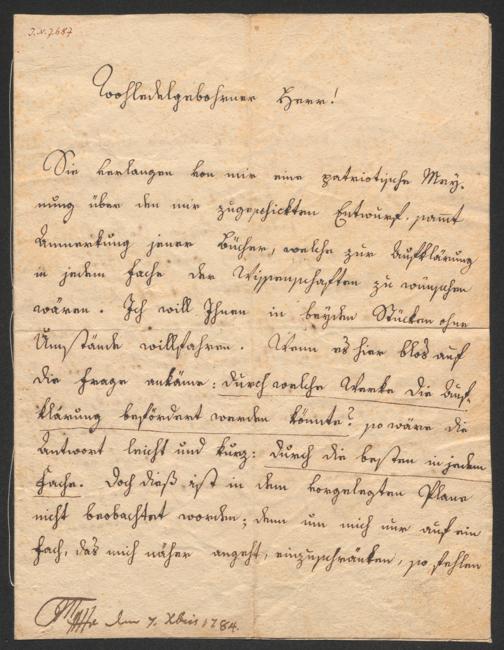 I.N. 7687
Wohledelgebohrner Herr!
Sie verlangen von mir eine patriotische Mey-
nung über den mir zugeschickten Entwurf, sammt
Anmerkung jener Bücher, welche zur Aufklärung
in jedem Fache der Wissenschaften zu wünschen
wären. Ich will Ihnen in beyden Stücken ohne
Umstände willfahren. Wenn es hier blos auf
die Frage ankäme: durch welche Werke die Auf-
klärung befördert werden könnte? so wäre die
Antwort leicht und kurz: durch die besten in jedem
Fache. Doch dieß ist in dem vorgelegten Plane
nicht beobachtet worden; denn um mich nur auf ein
Fach, das mich näher angeht, einzuschränken, so fehlen
den 7. Xbris 1784.